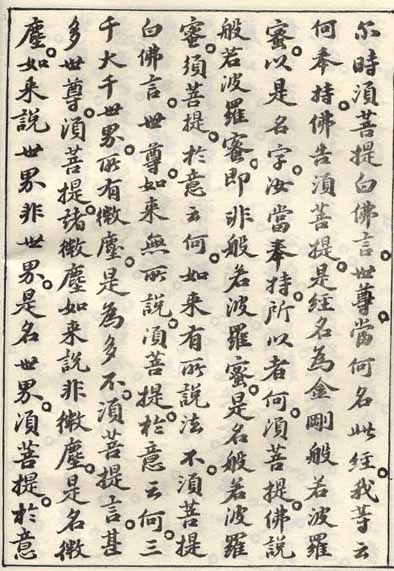 尔時須菩提白佛言。世尊。當何名此經。我等云
何奉持。佛告須菩提。是經名為金剛般若波羅
蜜。以是名字。汝當奉持。所以者何。須菩提。佛說
般若波羅蜜。即非般若波羅蜜。是名般若波羅
蜜。須菩提。於意云何。如来有所說法不。須菩提
白佛言。世尊。如来無所說。須菩提。於意云何。三
千大千世界。所有微塵。是為多不。須菩提言。甚
多。世尊。須菩提。諸微塵。如来說非微塵。是名微
塵。如来說世界非世界。是名世界。須菩提。於意